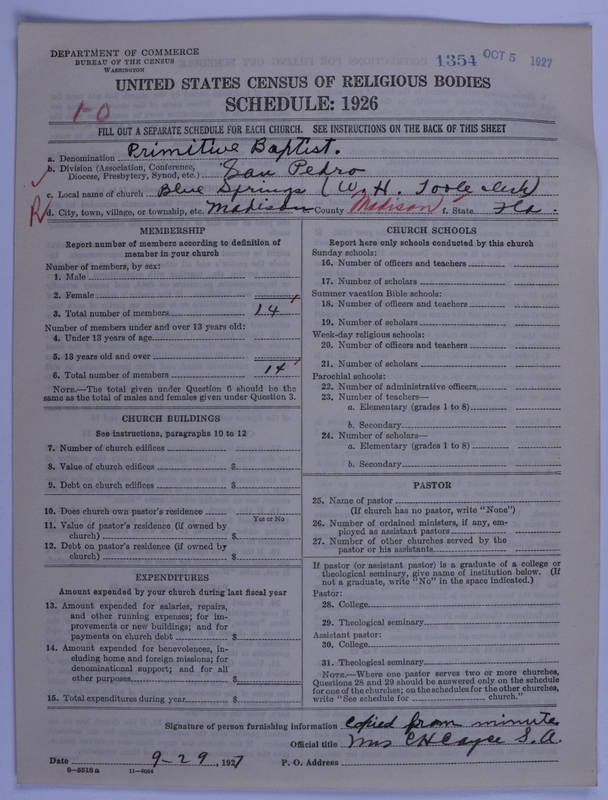 DEPARTMENT OF COMMERCE
BUREAU OF THE CENSUS
WASHINGTON
1354 OCT 5 1927
UNITED STATES CENSUS OF RELIGIOUS BODIES
SCHEDULE: 1926
1-0
FILL OUT A SEPARATE SCHEDULE FOR EACH CHURCH. SEE INSTRUCTIONS ON THE BACK OF THIS SHEET
a. Denomination Primitive Baptist.
b. Division (Association, Conference, Diocese, Presbytery, Synod, etc.) San Pedro
c. Local name of church Blue Springs (W. H. Toole clerk)
d. City, town, village, or township, etc. Madison County Madison f. State Fla.
MEMBERSHIP
Report number of members according to definition of
member in your church
Number of members, by sex:
1. Male
2. Female
3. Total number of members 14
Number of members under and over 13 years old:
4. Under 13 years of age
5. 13 years old and over
6. Total number of members 14
NOTE.—The total given under Question 6 should be the
same as the total of males and females given under Question 3.
CHURCH BUILDINGS
See instructions, paragraphs 10 to 12
7. Number of church edifices
8. Value of church edifices $
9. Debt on church edifices $
10. Does church own pastor's residence
Yes or No
11. Value of pastor's residence (if owned by
church) $
12. Debt on pastor's residence (if owned by
church) $
EXPENDITURES
Amount expended by your church during last fiscal year
13. Amount expended for salaries, repairs,
and other running expenses; for im-
provements or new buildings; and for
payments on church debt $
14. Amount expended for benevolences, in-
cluding home and foreign missions; for
denominational support; and for all
other purposes $
15. Total expenditures during year $
CHURCH SCHOOLS
Report here only schools conducted by this church
Sunday schools:
16. Number of officers and teachers
17. Number of scholars
Summer vacation Bible schools:
18. Number of officers and teachers
19. Number of scholars
Week-day religious schools:
20. Number of officers and teachers
21. Number of scholars
Parochial schools:
22. Number of administrative officers
23. Number of teachers—
a. Elementary (grades 1 to 8)
b. Secondary
24. Number of scholars—
a. Elementary (grades 1 to 8)
b. Secondary
PASTOR
25. Name of pastor
(If church has no pastor, write "None")
26. Number of ordained ministers, if any, em-
ployed as assistant pastors
27. Number of other churches served by the
pastor or his assistants
If pastor (or assistant pastor) is a graduate of a college or
theological seminary, give name of institution below. (If
not a graduate, write "No" in the space indicated.)
Pastor:
28. College
29. Theological seminary
Assistant pastor:
30. College
31. Theological seminary
NOTE.—Where one pastor serves two or more churches,
Questions 28 and 29 should be answered only on the schedule
for one of the churches; on the schedules for the other churches,
write "See schedule for church."
Signature of person furnishing information Copied from minutes
Official title Mrs C H Cayce S. A.
Date 9-29, 1927 P. O. Address
8-5518a 11-9054